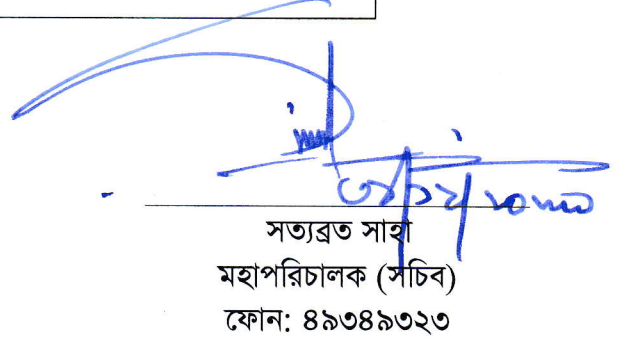 সত্যব্রত সাহা
মহাপরিচালক (সচিব)
ফোন: ৪৯৩৪৯৩২৩